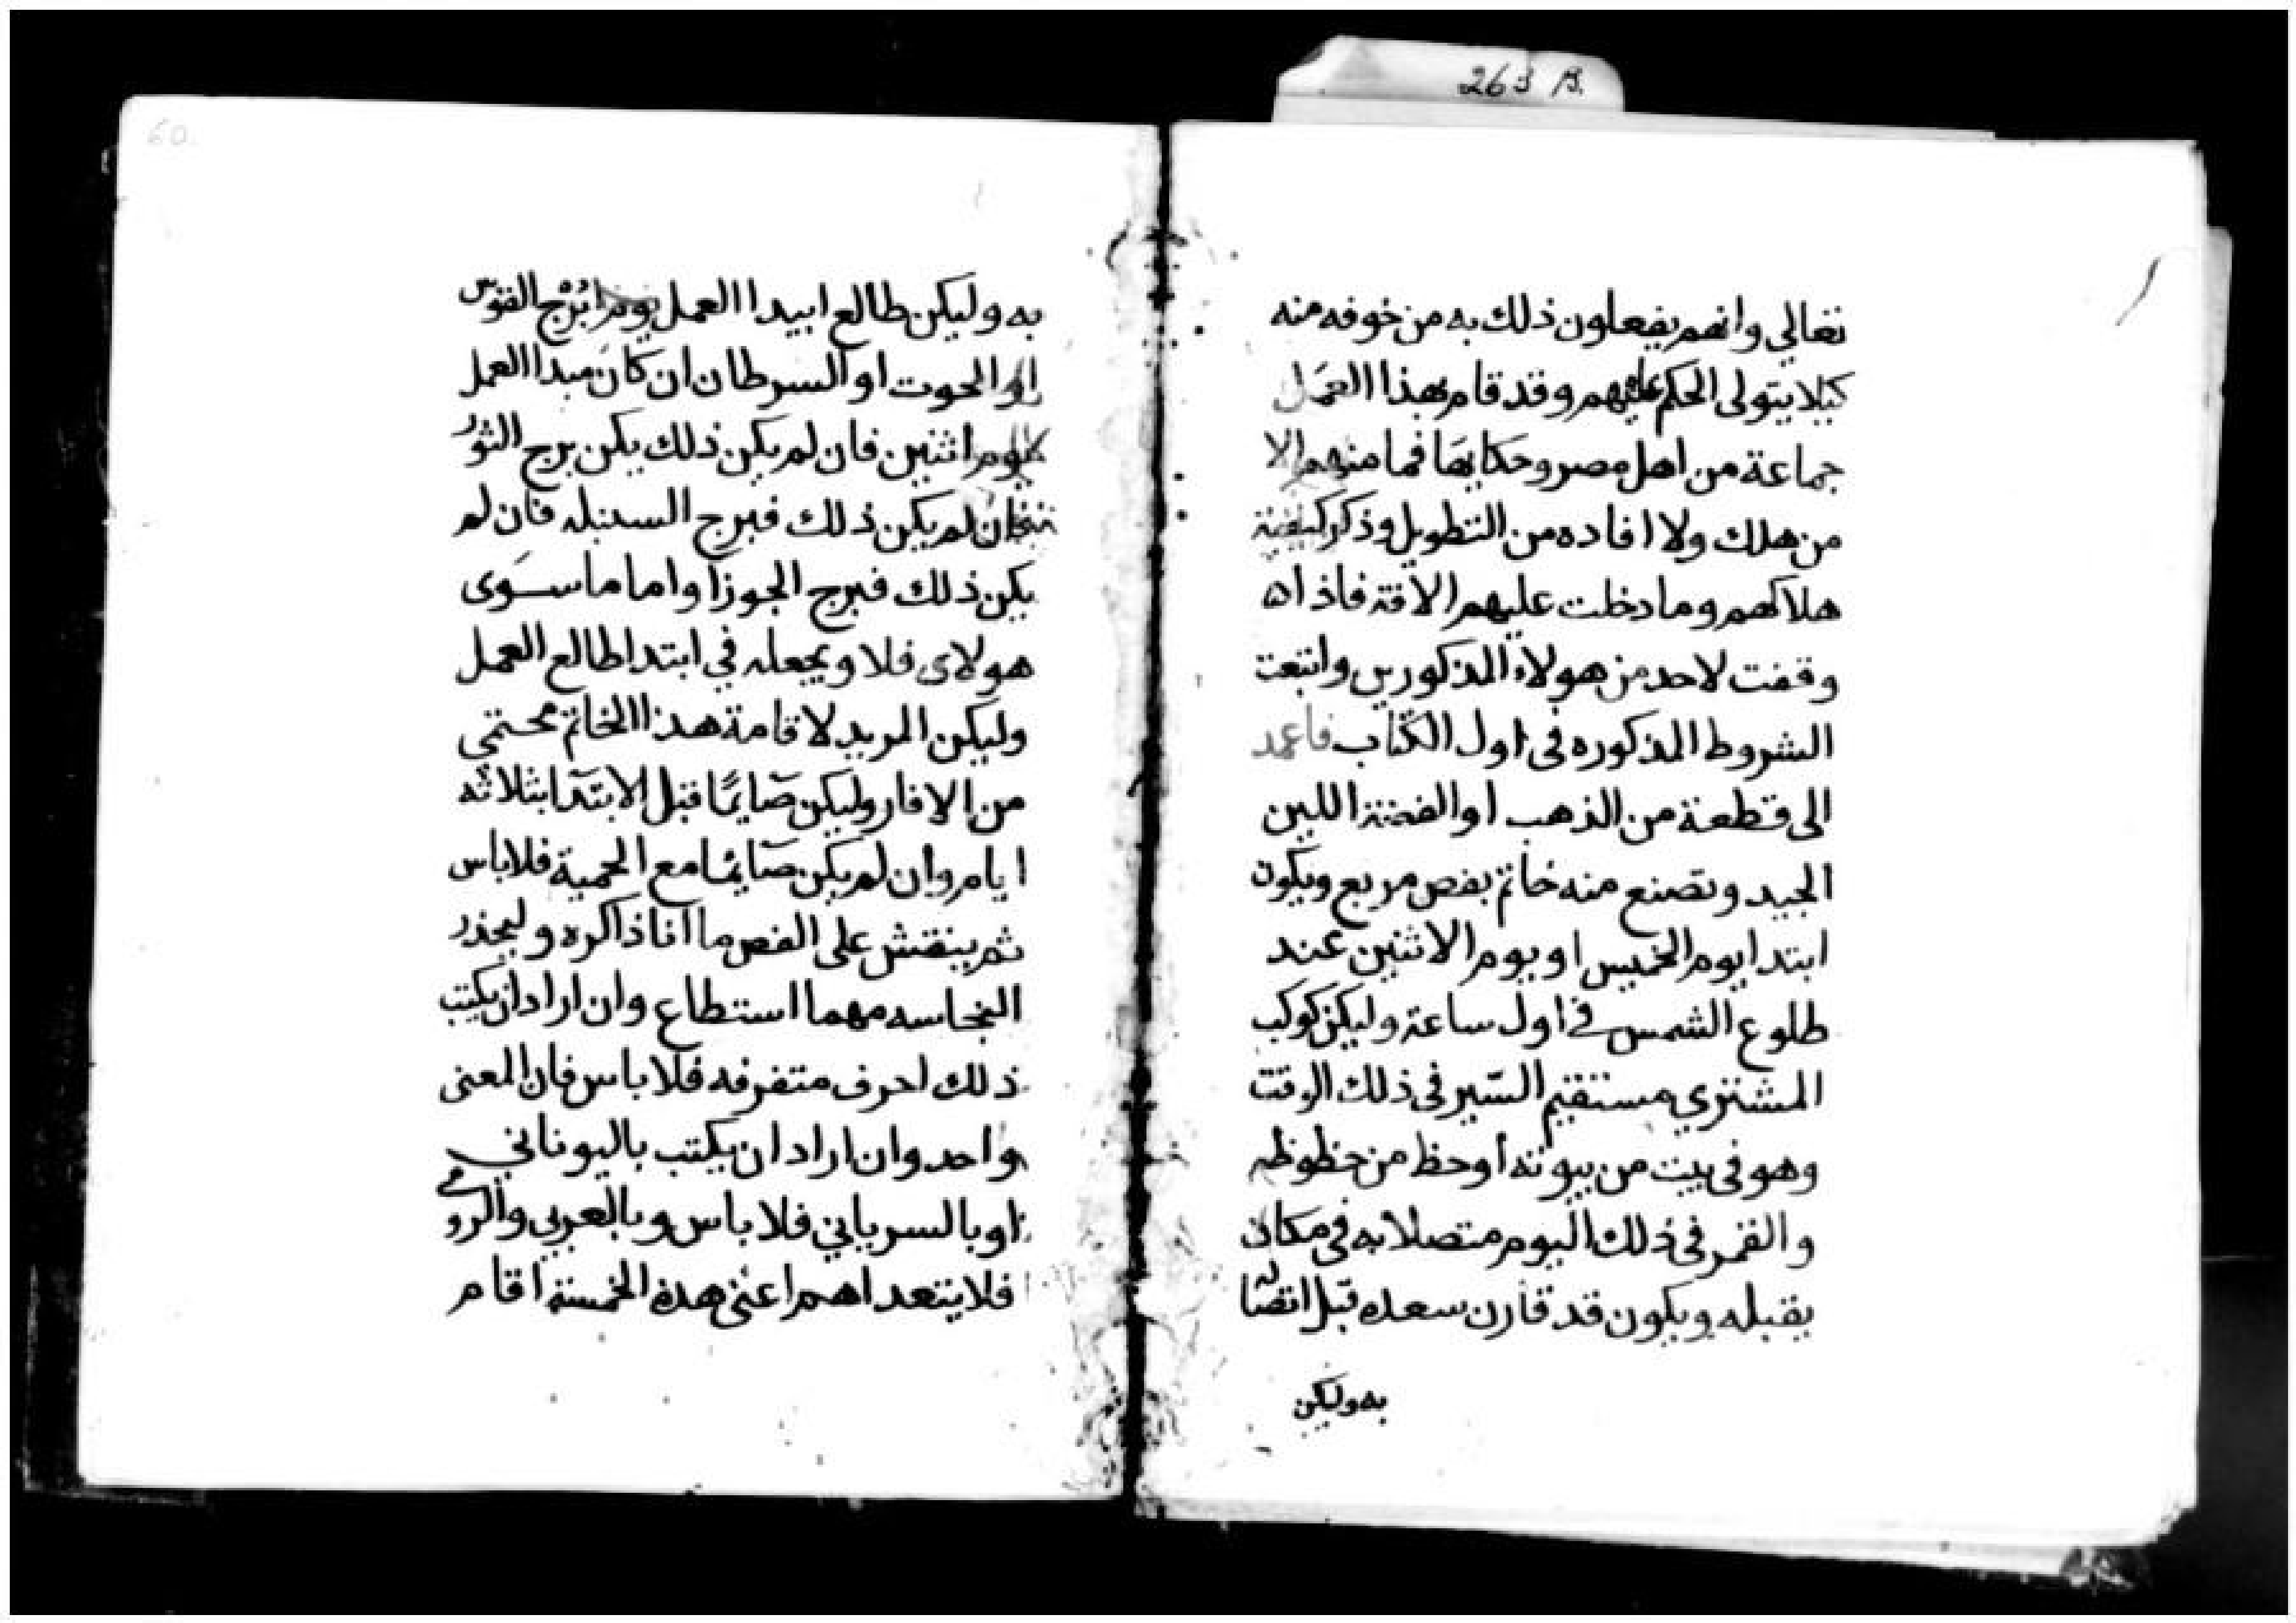 263 B.
تعالي وانهم يفعلون ذلك به من خوفه منه
كيلا يتولى الحكم عليهم وقد قام بهذا العمل
جماعة من اهل مصر وحكايها فما منهم الا
من هلك ولا افاده من التطويل وذكر كيفية
هلاكهم وما دخلت عليهم الافة فاذا
وقفت لاحد من هولاء المذكورين واتبعت
الشروط المذكوره فى اول الكتاب فاعمد
الى قطعة من الذهب او الفضة اللين
الجيد وتصنع منه خاتم بفص مربع ويكون
ابتدا يوم الخميس او يوم الاثنين عند
طلوع الشمس في اول ساعة وليكن كوكب
المشتري مستقيم السير فى ذلك الوقت
وهو فى بيت من بيوته او حظ من حظوظه
والقمر فى ذلك اليوم متصلا به فى مكان
يقبله ويكون قد قارن سعده قبل اتصاله
به وليكن
60
به وليكن طالع ابيدا العمل برج القوس
او الحوت او السرطان ان كان مبدا العمل
يوم اثنين فان لم يكن ذلك يكن برج الثور
فان لم يكن ذلك فبرج السنبله فان لم
يكن ذلك فبرج الجوزا واما ما سوى
هولاى فلا ويجعله في ابتدا طالع العمل
وليكن المريد لاقامة هذا الخاتم محتمي
من الافار وليكن صايمًا قبل الابتدا بثلاثه
ايام وان لم يكن صايما مع الحمية فلا باس
ثم ينقش على الفص ما انا ذاكره وليحذر
النجاسه مهما استطاع وان اراد ان يكتب
ذلك احرف متفرقه فلا باس فان المعنى
واحد وان اراد ان يكتب باليوناني
او بالسرياني فلا باس وبالعربي والرومي
فلا يتعداهم اعني هذة الخمسة اقام